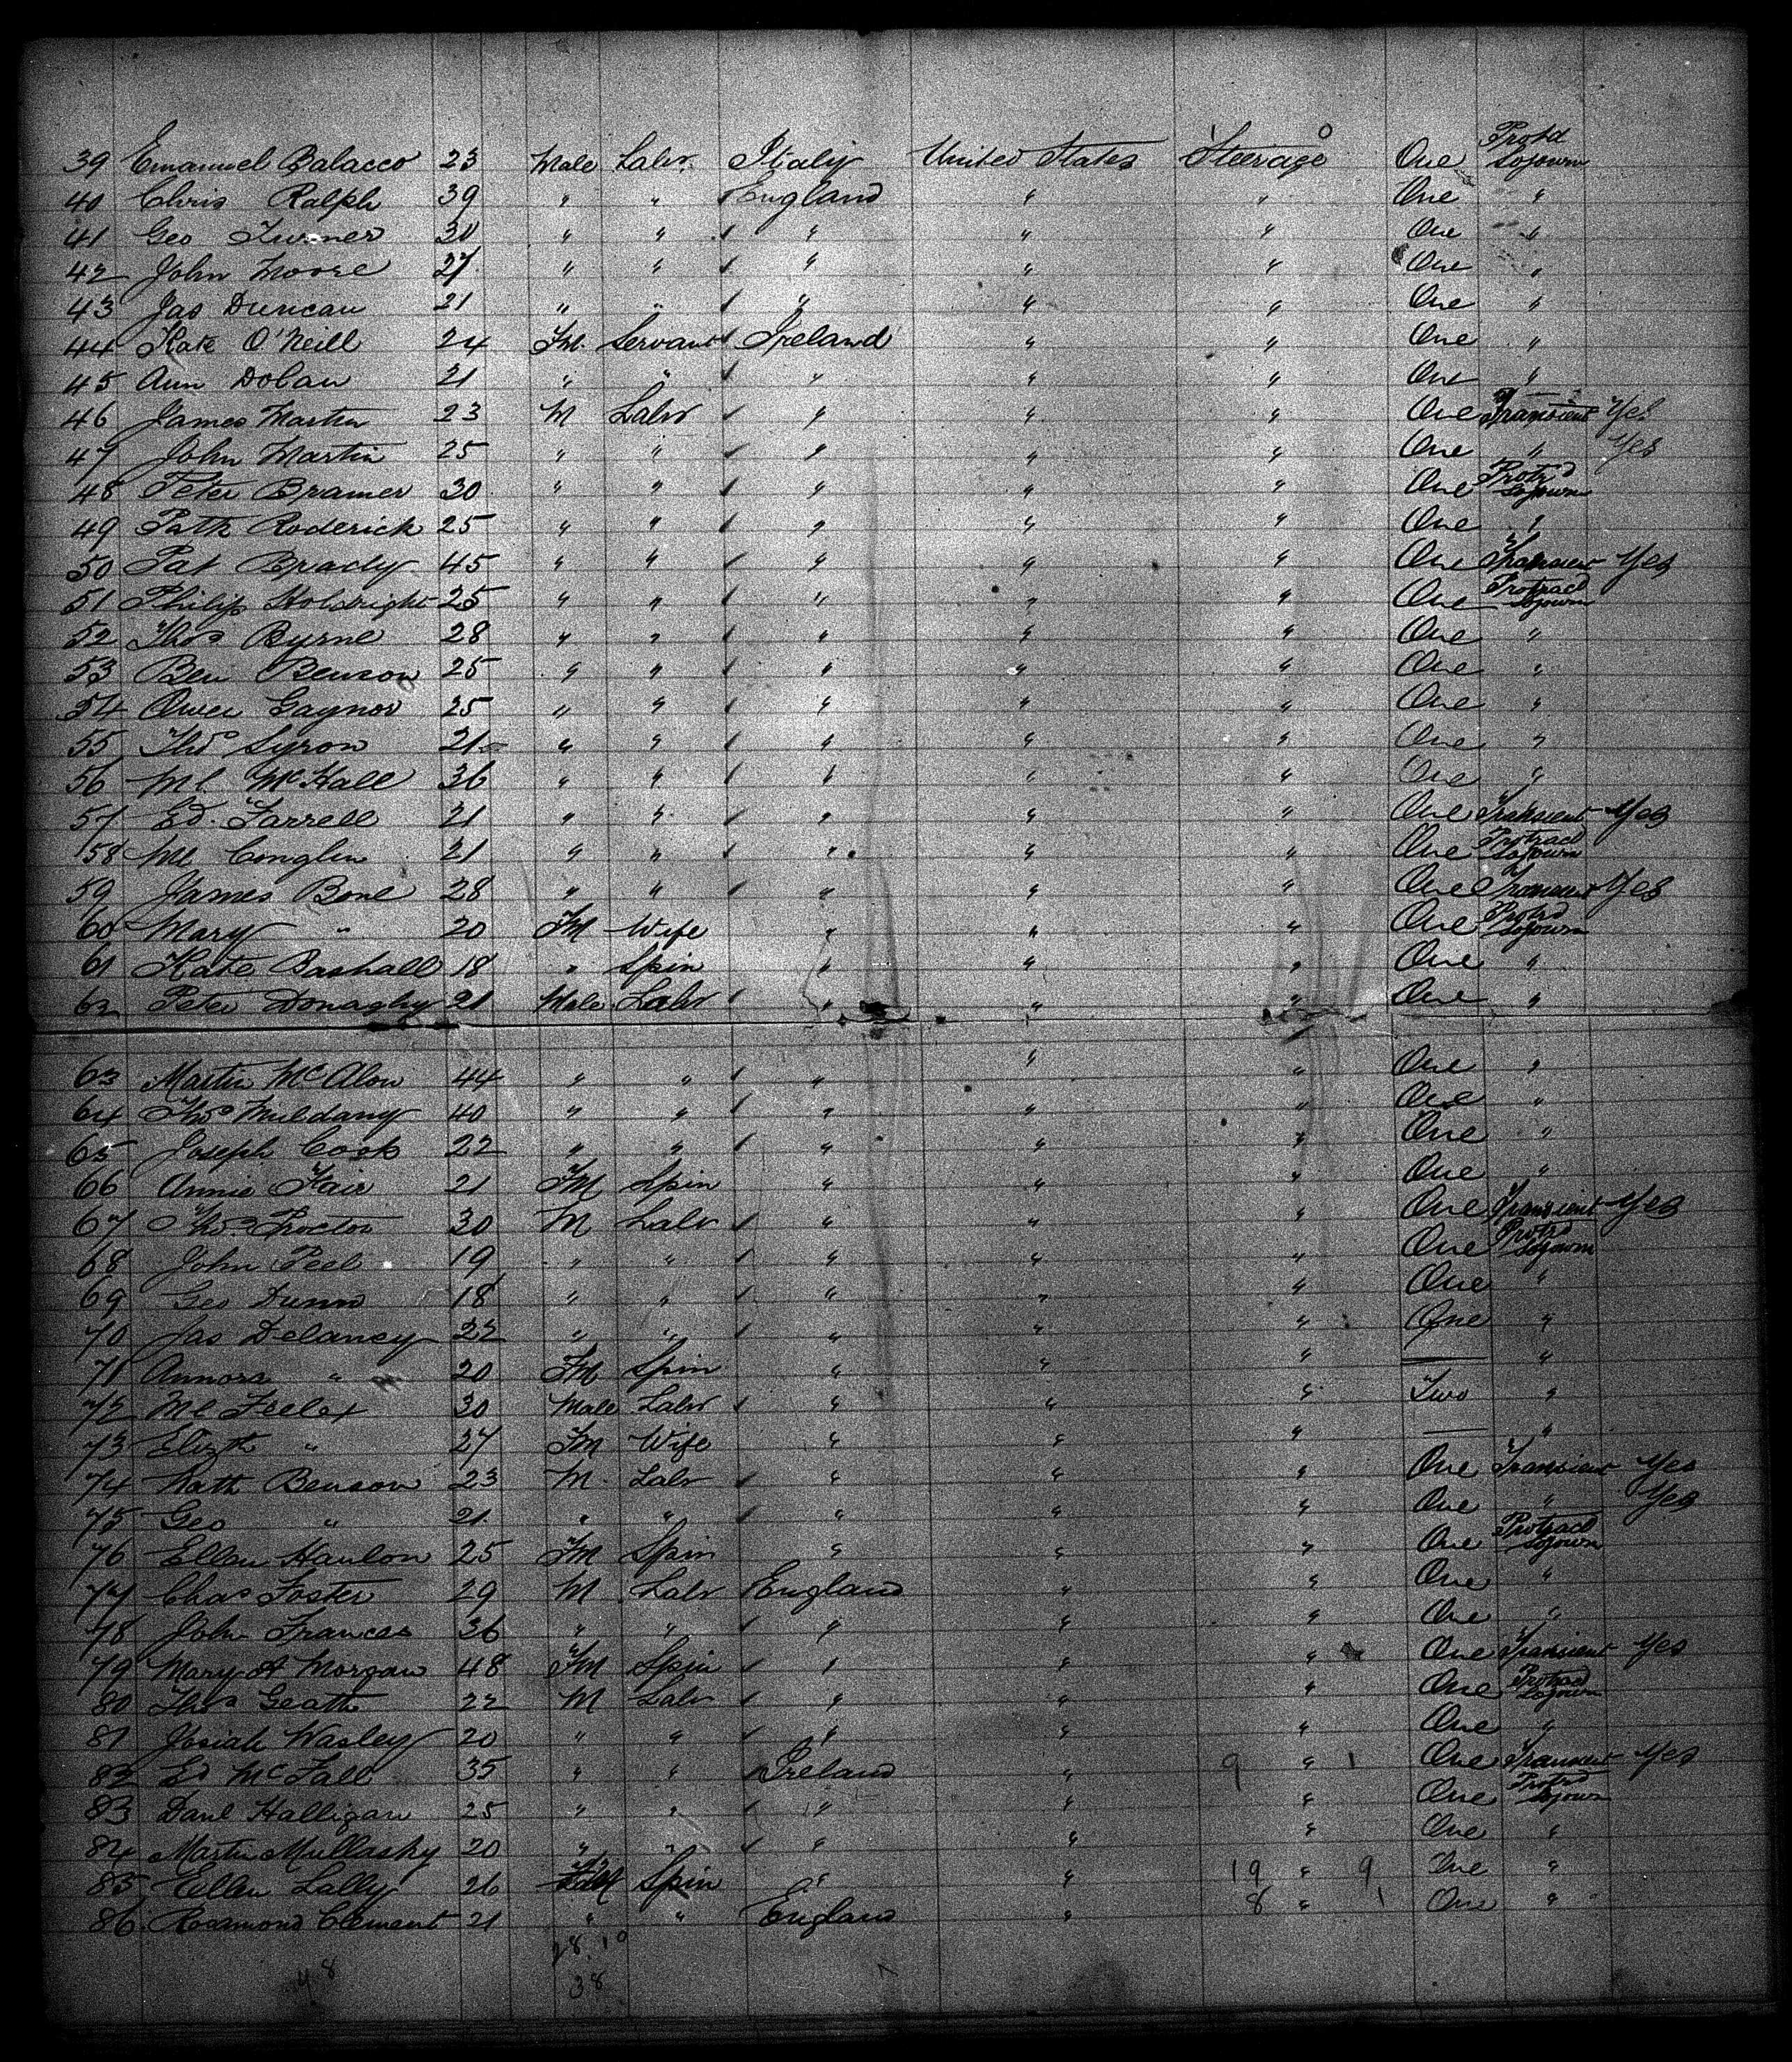 39 Emanuel Balacco 23 Male Labr. Italy United States Steerage One Protd Sojourn
40 Chris Ralph 39 " " England " " One "
41 Geo Turner 30 " " " " " One "
42 John Moore 27 " " " " " One "
43 Jas Duncan 21 " " " " " One "
44 Kate O'Neill 24 Fm. Servant Ireland " " One "
45 Ann Dolan 21 " " " " " One "
46 James Martin 23 M Labr " " " One Transient Yes
47 John Martin 25 " " " " " One " Yes
48 Peter Bramer 30 " " " " " One Protd Sojourn
49 Patk Roderick 25 " " " " " One "
50 Pat Brady 45 " " " " " One Transient Yes
51 Philip 25 " " " " " One Protracd Sojourn
52 Thos Byrne 28 " " " " " One "
53 Ben Benson 25 " " " " " One "
54 Owen Gaynor 25 " " " " " One "
55 Thos Syron 21 " " " " " One "
56 Ml McHale 36 " " " " " One "
57 Ed. Farrell 21 " " " " " One Transient Yes
58 Ml Conglin 21 " " " " " One Protracd Sojourn
59 James Bone 28 " " " " " One Transient Yes
60 Mary " 20 Fm Wife " " " One Protrd Sojourn
61 Kate Bashall 18 " Spin " " " One "
62 Peter Donaghy 21 Male Labr " " " One "
63 Martin McAlon 44 " " " " " One "
64 Thos Muldany 40 " " " " " One "
65 Joseph Cook 22 " " " " " One "
66 Annie Hair 21 Fm Spin " " " One "
67 Thos Proctor 30 M Labr " " " One Transient Yes
68 John Peel 19 " " " " " One Protrd Sojourn
69 Geo Dunn 18 " " " " " One "
70 Jas Delaney 22 " " " " " One "
71 Annora " 20 Fm Spin " " " — "
72 Ml 30 Male Labr " " " Two "
73 Elizth " 27 Fm Wife " " " — "
74 Nath Benson 23 M. Labr " " " One Transient Yes
75 Geo " 21 " " " " " One " Yes
76 Ellen Hanlon 25 Fm Spin " " " One Protracd Sojourn
77 Chas Foster 29 M Labr England " " One "
78 John Frances 36 " " " " " One "
79 Mary A Morgan 48 Fm Spin " " " One Transient Yes
80 Thos Geath 22 M Labr " " " One Protracd Sojourn
81 Josiah Wasley 20 " " " " " One "
82 Ed McFall 35 " " Ireland " 9 " 1 One Transient Yes
83 Danl Halligan 25 " " " " " One Protrd Sojourn
84 Martin Mullasky 20 " " " " " One "
85 Ellen Lally 26 Spin " " 19 " 9 One "
86 Rosamond Clement 21 " " England " 8 " 1 One "
28.10
48 38